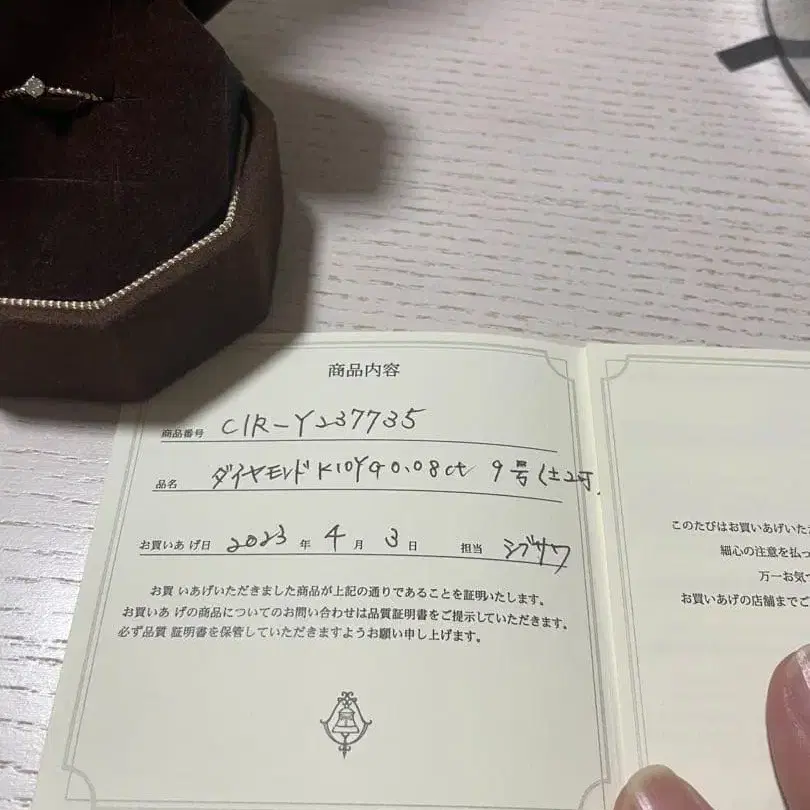 商品内容
商品番号 CIR-Y237735
品名 ダイヤモンドK10YG0.08ct 9号(±2可
お買いあげ日 2023 年 4 月 3 日 担当 シブサワ
お買いあげいただきました商品が上記の通りであることを証明いたします。
お買いあげの商品についてのお問い合わせは品質証明書をご提示していただきます。
必ず品質証明書を保管していただきますようお願い申し上げます。
このたびはお買いあげいた
細心の注意を払っ
万一お気
お買いあげの店舗までご